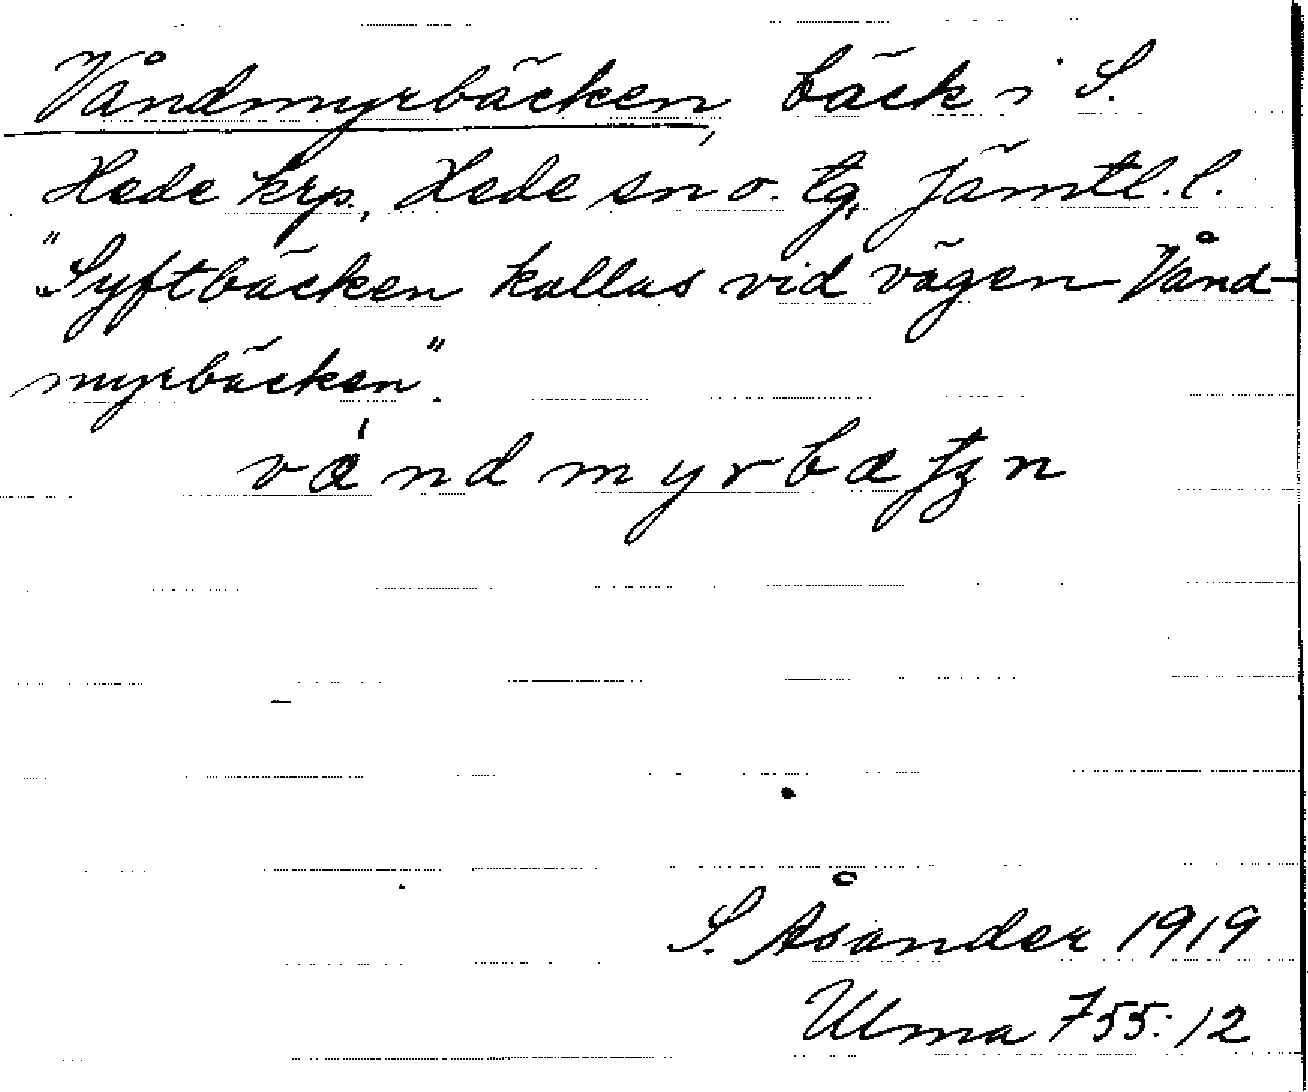 Våndmyrbäcken, bäck i S.
Hede krp., Hede sn o. tg, Jämtl. l.
"Syftbäcken kallas vid vägen Vånd-
myrbäcken".
vǻndmyrbæʃʒn
S. Åsander 1919
Ulma 755:12